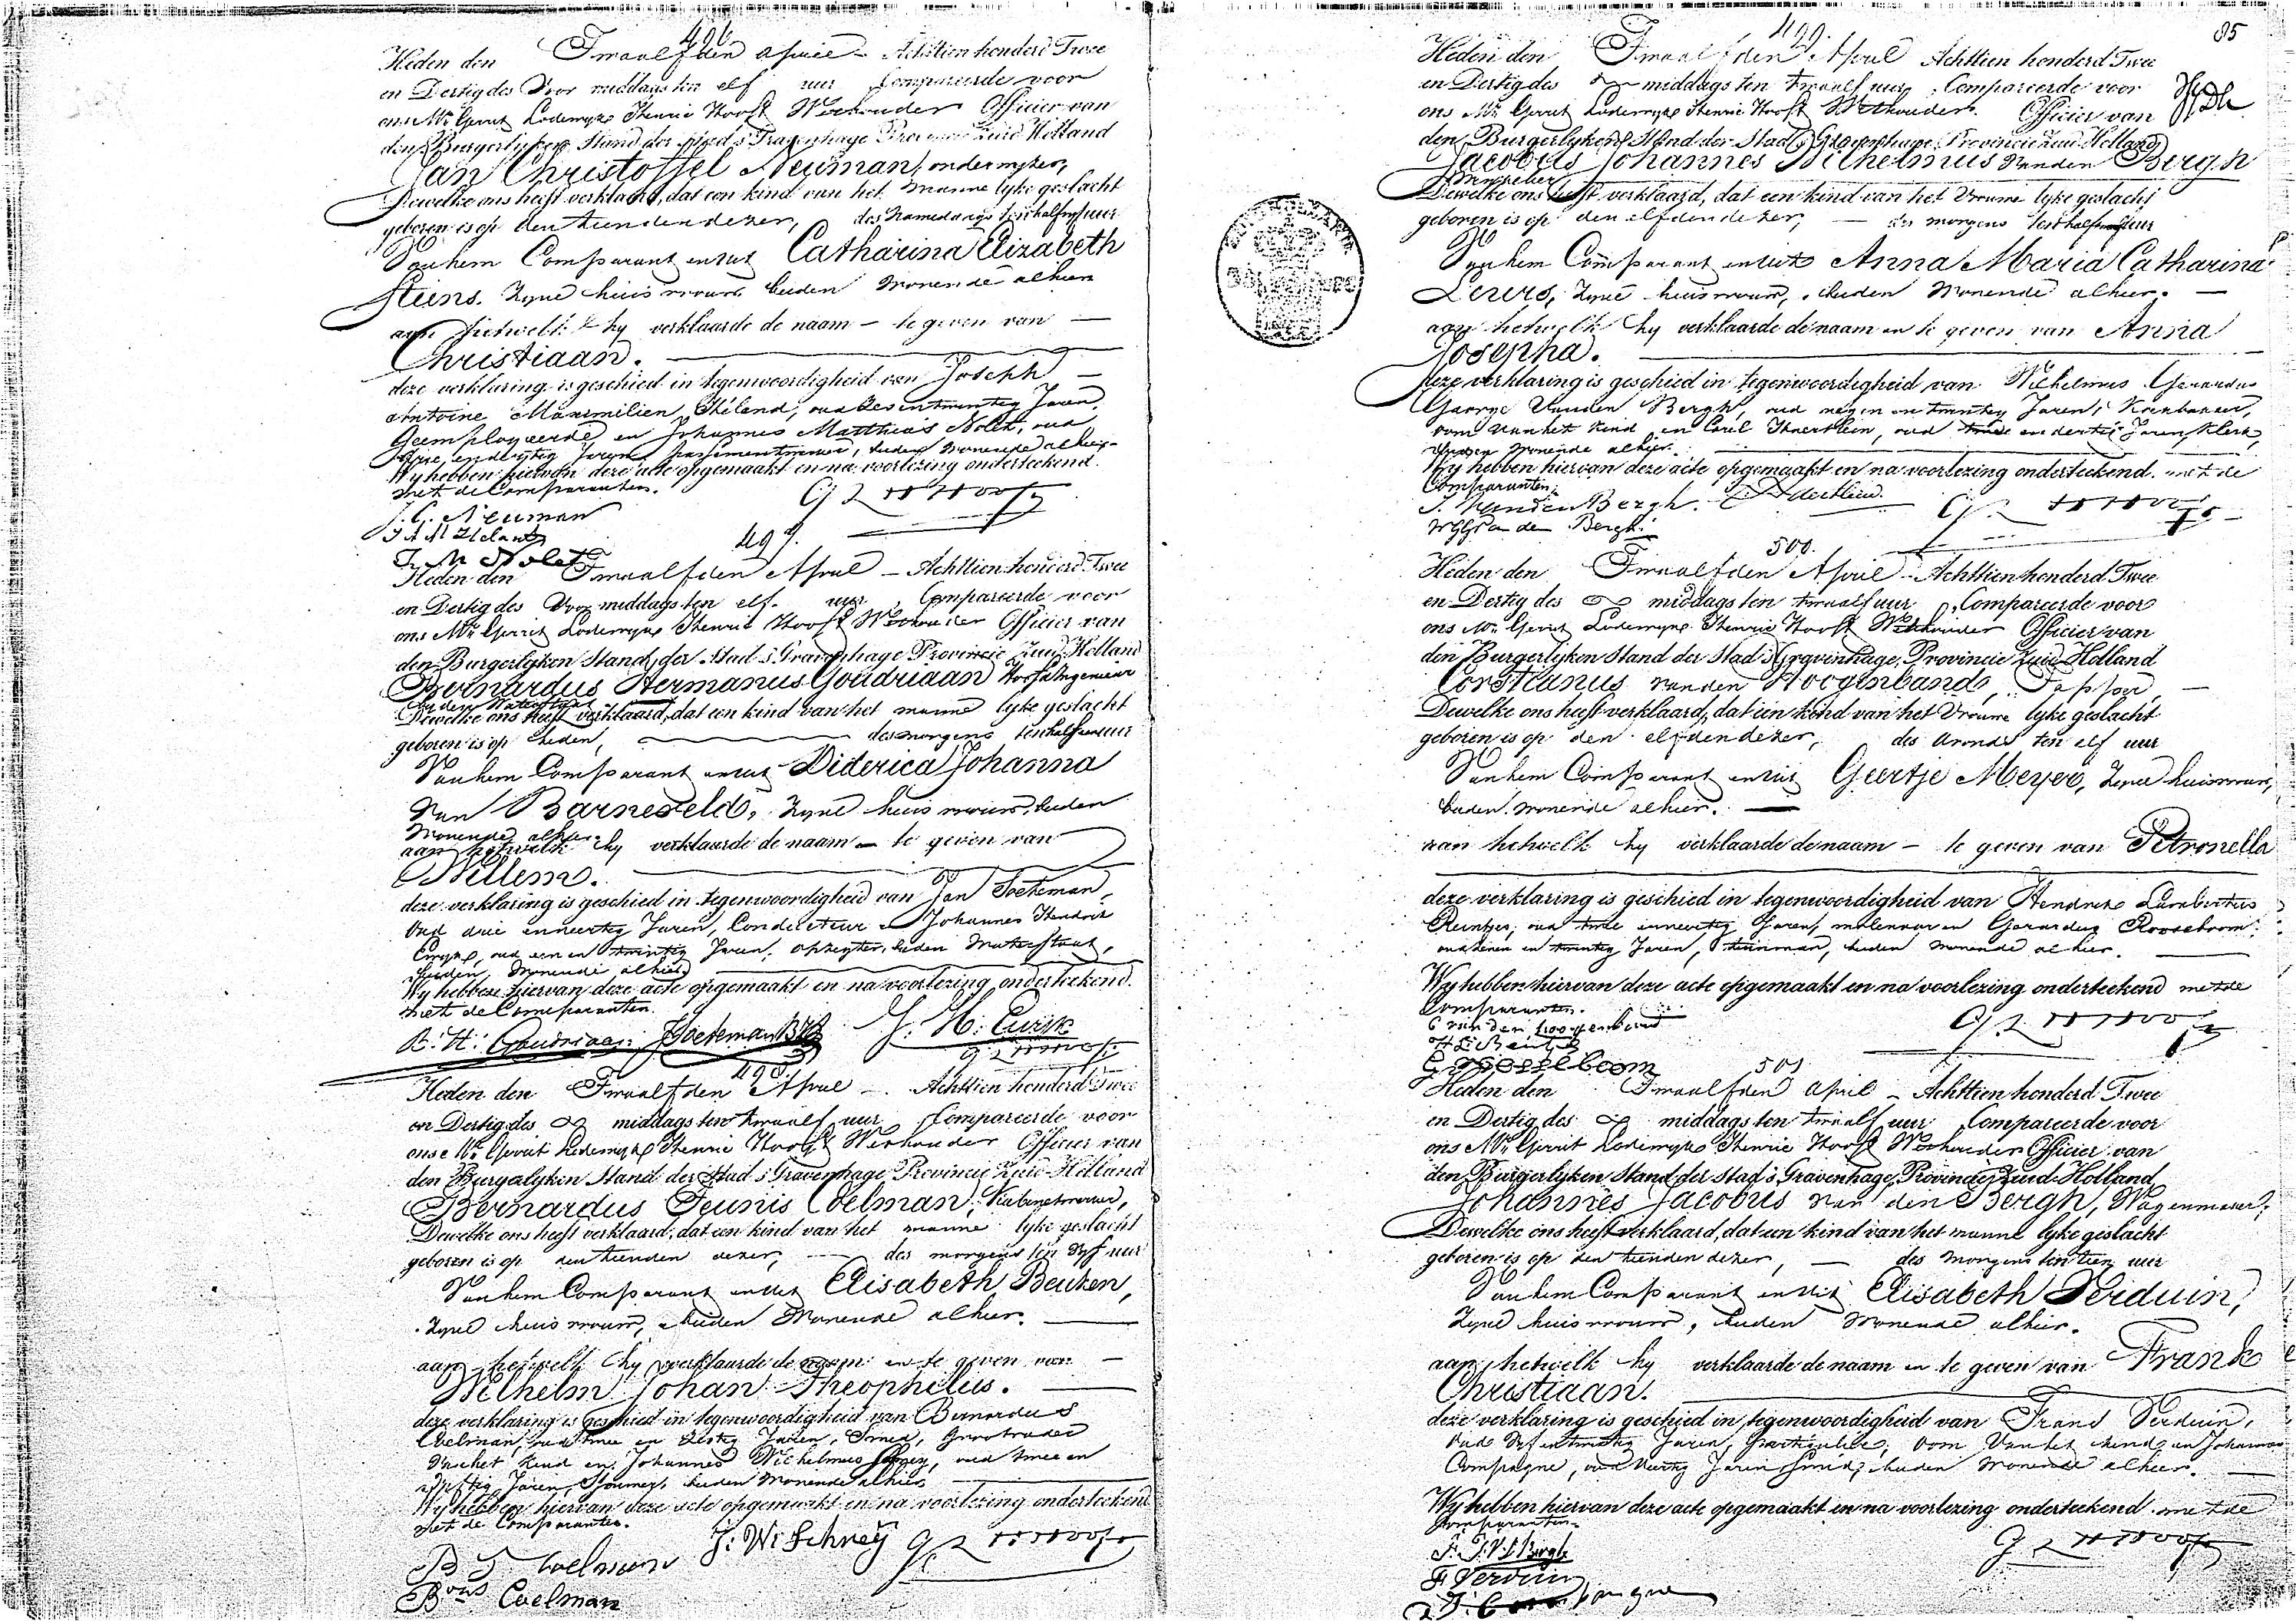 496
Heden den Twaalfden April Achttien honderd Twee
en Dertig des Voor middags ten elf uur Compareerde voor
ons Mr. Gerrit Lodewyke Henrie Hooft Wethouder Officier van
den Burgerlyken Stand der Stad s'Gravenhage Provincie Zuid Holland
Jan Christoffel Neuman, onderwyzer,
Dewelke ons heeft verklaard, dat een kind van het manne lyke geslacht
geboren is op den tienden dezer, des namiddags ten half uur
Van hem Comparant en uit Catharina Elizabeth
Steins. Zyne huisvrouw beiden Wonende alhier
aan hetwelk hy verklaarde de naam te geven van
Christiaan.
deze verklaring is geschied in tegenwoordigheid van Joseph
Antoine Maximilien Heland, oud zes en twintig Jaren,
Geemployeerde, en Johannes Matthias Nolet, oud
en dertig Jaren, beiden Wonende alhier
Wy hebben hiervan deze acte opgemaakt en na voorlezing onderteekend.
met de Comparanten.
J. C. Neuman
J A M Heland
J. M Nolet
497.
Heden den Twaalfden April Achttien honderd Twee
en Dertig des Voor middags ten elf uur Compareerde voor
ons Mr. Gerrit Lodewyke Henrie Hooft Wethouder Officier van
den Burgerlyken Stand der Stad s'Gravenhage Provincie Zuid Holland
Bernardus Hermanus Goudriaan Hoofd Ingenieur
by den Waterstaat
Dewelke ons heeft verklaard, dat een kind van het manne lyke geslacht
geboren is op heden, des morgens ten half uur
Van hem Comparant en uit Diderica Johanna
Van Barneveld, Zyne huisvrouw, beiden
Wonende alhier
aan hetwelk hy verklaarde de naam te geven van
Willem.
deze verklaring is geschied in tegenwoordigheid van Jan Soeteman,
Oud drie en veertig Jaren, Conducteur en Johannes Hendrik
oud een en twintig Jaren, opzigter, beiden Waterstaat,
beiden Wonende alhier
Wy hebben hiervan deze acte opgemaakt en na voorlezing onderteekend.
met de Comparanten.
B: H: Goudriaan JSoeteman J. H:
498.
Heden den Twaalfden April Achttien honderd Twee
en Dertig des middags ten twaalf uur Compareerde voor
ons Mr. Gerrit Lodewyke Henrie Hooft Wethouder Officier van
den Burgerlyken Stand der Stad s'Gravenhage Provincie Zuid Holland
Bernardus Teunis Coelman, Kabinetwerker,
Dewelke ons heeft verklaard, dat een kind van het manne lyke geslacht
geboren is op den tienden dezer, des morgens ten vyf uur
Van hem Comparant en uit Elisabeth Beuken,
Zyne huisvrouw, beiden Wonende alhier.
aan hetwelk hy verklaarde de naam en te geven van
Wilhelm Johan Theophilus.
deze verklaring is geschied in tegenwoordigheid van Bernardus
Coelman, oud twee en zestig Jaren, Smid, Grootvader
Van het Kind en Johannes Wilhelmus oud twee en
vyftig Jaren, beiden Wonende alhier
Wy hebben hiervan deze acte opgemaakt en na voorlezing onderteekend
met de Comparanten.
B T Coelman J: W: Schrey
Bnus Coelman
85
499.
Heden den Twaalfden April Achttien honderd Twee
en Dertig des middags ten twaalf uur Compareerde voor
ons Mr. Gerrit Lodewyke Henrie Hooft Wethouder Officier van
den Burgerlyken Stand der Stad s'Gravenhage Provincie Zuid Holland
Jacobus Johannes Wilhelmus van den Bergh
Dewelke ons heeft verklaard, dat een kind van het Vrouwe lyke geslacht
geboren is op den elfden dezer, des morgens ten half uur
Van hem Comparant en uit Anna Maria Catharina
Zyne huisvrouw, beiden Wonende alhier.
aan hetwelk hy verklaarde de naam en te geven van Anna
Josepha.
deze verklaring is geschied in tegenwoordigheid van Wilhelmus Gerardus
George Van den Bergh, oud negen en twintig Jaren,
oom van het Kind en Carel oud twee en dertig Jaren, Klerk,
beiden Wonende alhier.
Wy hebben hiervan deze acte opgemaakt en na voorlezing onderteekend. met de
Comparanten.
J. Van den Bergh.
WGG Van den Bergh
500.
Heden den Twaalfden April Achttien honderd Twee
en Dertig des middags ten twaalf uur Compareerde voor
ons Mr. Gerrit Lodewyke Henrie Hooft Wethouder Officier van
den Burgerlyken Stand der Stad s'Gravenhage, Provincie Zuid Holland
Corstianus van den Hoogenband, Tapper,
Dewelke ons heeft verklaard, dat een kind van het Vrouwe lyke geslacht
geboren is op den elfden dezer, des avonds ten elf uur
Van hem Comparant en uit Geertje Meyer, Zyne huisvrouw,
beiden Wonende alhier.
aan hetwelk hy verklaarde de naam te geven van Petronella
deze verklaring is geschied in tegenwoordigheid van Hendrik Lambertus
Reintjes, oud twee en veertig Jaren, molenaar en Gerardus Rooseboom,
oud zeven en twintig Jaren, tuinman, beiden Wonende alhier.
Wy hebben hiervan deze acte opgemaakt en na voorlezing onderteekend met de
Comparanten.
C van den hoogenband
H L Reintjes
G Rooseboom
501
Heden den Twaalfden April Achttien honderd Twee
en Dertig des middags ten twaalf uur Compareerde voor
ons Mr. Gerrit Lodewyke Henrie Hooft Wethouder Officier van
den Burgerlyken Stand der Stad s'Gravenhage, Provincie Zuid-Holland
Johannes Jacobus van den Bergh, Wagenmaker,
Dewelke ons heeft verklaard, dat een kind van het manne lyke geslacht
geboren is op den tienden dezer, des morgens ten tien uur
Van hem Comparant en uit Elisabeth Verduin,
Zyne huisvrouw, beiden Wonende alhier.
aan hetwelk hy verklaarde de naam en te geven van Frank
Christiaan.
deze verklaring is geschied in tegenwoordigheid van Frans Verduin,
Oud vyf en twintig Jaren, particulier, oom Van het kind en Johannes
Compagne, oud Veertig Jaren Smid, beiden Wonende alhier.
Wy hebben hiervan deze acte opgemaakt en na voorlezing onderteekend met de
Comparanten.
J. J. V. d. Bergh
F Verduin
J. Compagne